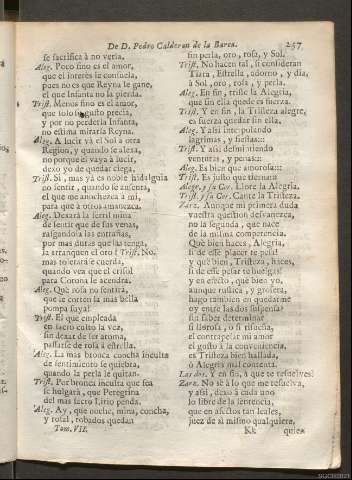 De D. Pedro Calderon de la Barca. 257
se sacrifica à no verla.
Aleg. Poco fino es el amor,
que el interès le consuela,
pues no es que Reyna le gane,
el que Infanta no la pierda.
Trist. Menos fino es el amor,
que solo su gusto precia,
y por no perderla Infanta,
no estima mirarla Reyna.
Aleg. A lucir và el Sol à otra
Region, y quando se alexa,
no porque èl vaya à lucir,
dexo yo de quedar ciega.
Trist. Sì, mas yà es noble hidalguia
no sentir, quando se ausenta,
el que me anochezca à mì,
para que à otros amanezca.
Aleg. Dexarà la fertil mina
de sentir que de sus venas,
rasgandola las entrañas,
por mas duras que las tenga,
la arranquen el oro? Trist. No,
mas tolerarà cuerda,
quando vea que el crisol
para Corona le acendra.
Aleg. Què rosa no sentirà,
que le corten la mas bella
pompa suya?
Trist. El que empleada
en sacro culto la vea,
sin dexar de ser aroma,
passarse de rosa à estrella.
Aleg. La mas bronca concha inculta
de sentimiento se quiebra,
quando la perla le quitan.
Trist. Por bronca inculta que sea
se holgarà, que Peregrina
del mas sacro Lirio penda.
Aleg. Ay, que noche, mina, concha,
y rosal, robados quedan
Tom. VII.
sin perla, oro, rosa, y Sol.
Trist. No hacen tal, si consideran
Tiara, Estrella, adorno, y dia,
à Sol, oro, rosa, y perla.
Aleg. En fin, triste la Alegria,
que sin ella quede es fuerza.
Trist. Y en fin, la Tristeza alegre,
es fuerza quedar sin ella.
Aleg. Y assi interpolando
lagrimas, y fiestas:::
Trist. Y assi desmintiendo
venturas, y penas:::
Aleg. Es bien que amorosa:::
Trist. Es justo que tierna:::
Alegr. y su Cor. Llore la Alegria.
Trist. y su Cor. Cante la Tristeza.
Zara. Aunque mi primera duda
vuestra question desvanezca,
no la segunda, que nace
de la misma competencia.
Què bien haces, Alegria,
si de esse placer te pesa!
y què bien, Tristeza, haces,
si de esse pesar te huelgas!
y en efecto, què bien yo,
aunque rustica, y grosera,
hago tambien en quedarme
oy entre las dos suspensa!
sin saber determinar
si llorosa, ò si risueña,
el contrapesar mi amor
el gusto à la conveniencia,
es Tristeza bien hallada,
ò Alegria mal contenta.
Las dos. Y en fin, à què te resuelves?
Zara. No sè à lo que me resuelva,
y assi, dexo à cada uno
lo libre de la sentencia,
que en afectos tan leales,
juez de sì mismo qualquiera,
Kk quien